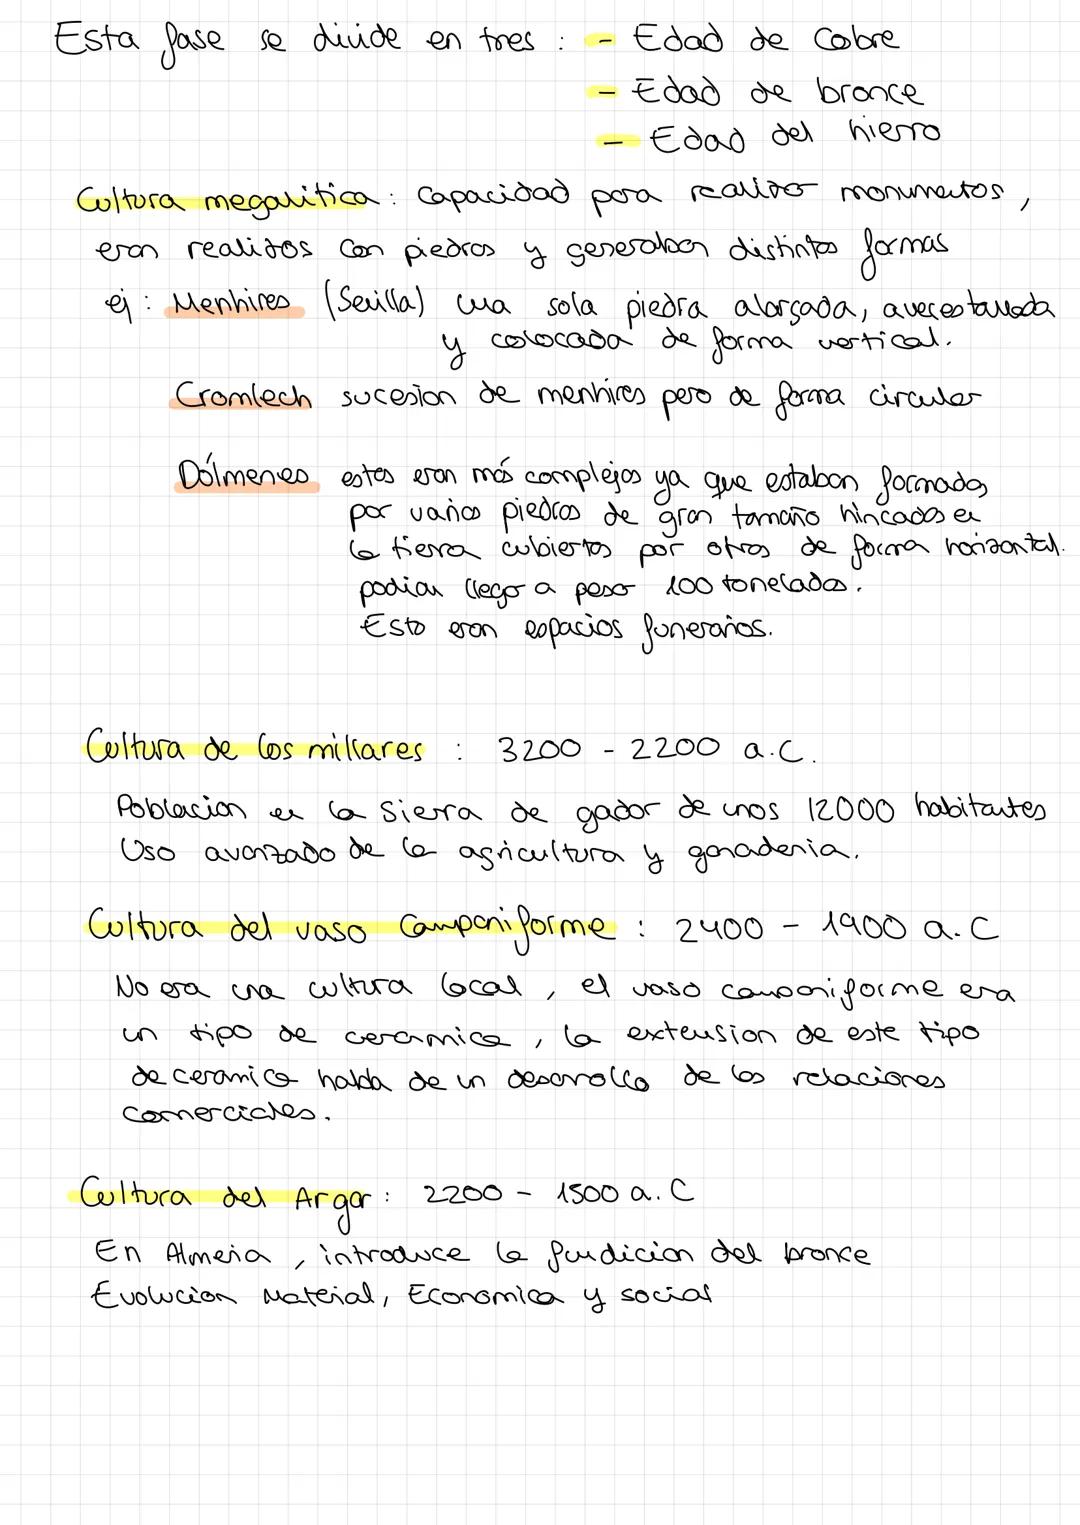 Esta fase se divide en tres : - Edad de Cobre
- Edad de bronce
- Edad del hierro
Cultura megalitica : Capacidad para realizar monumentos,
eran realizos con piedras y generaban distintas formas
ej : Menhires (Sevilla) una sola piedra alargada, a veces tallada
y colocada de forma vertical.
Cromlech sucesion de menhires pero de forma circular
Dólmenes estos eran más complejos ya que estaban formados
por varias piedras de gran tamaño hincadas en
la tierra cubiertos por otras de forma horizontal.
podian llegar a pesar 100 toneladas.
Esto eran espacios funerarios.
Cultura de los millares : 3200 - 2200 a.C.
Poblacion en la Sierra de gador de unos 12000 habitantes
Uso avanzado de la agricultura y ganaderia.
Cultura del vaso Campaniforme : 2400 - 1900 a.C
No era una cultura local, el vaso campaniforme era
un tipo de ceramica, la extension de este tipo
de ceramica habla de un desarrollo de las relaciones
comerciales.
Cultura del Argar : 2200 - 1500 a.C
En Almeria, introduce la fundicion del bronce
Evolucion Material, Economica y social